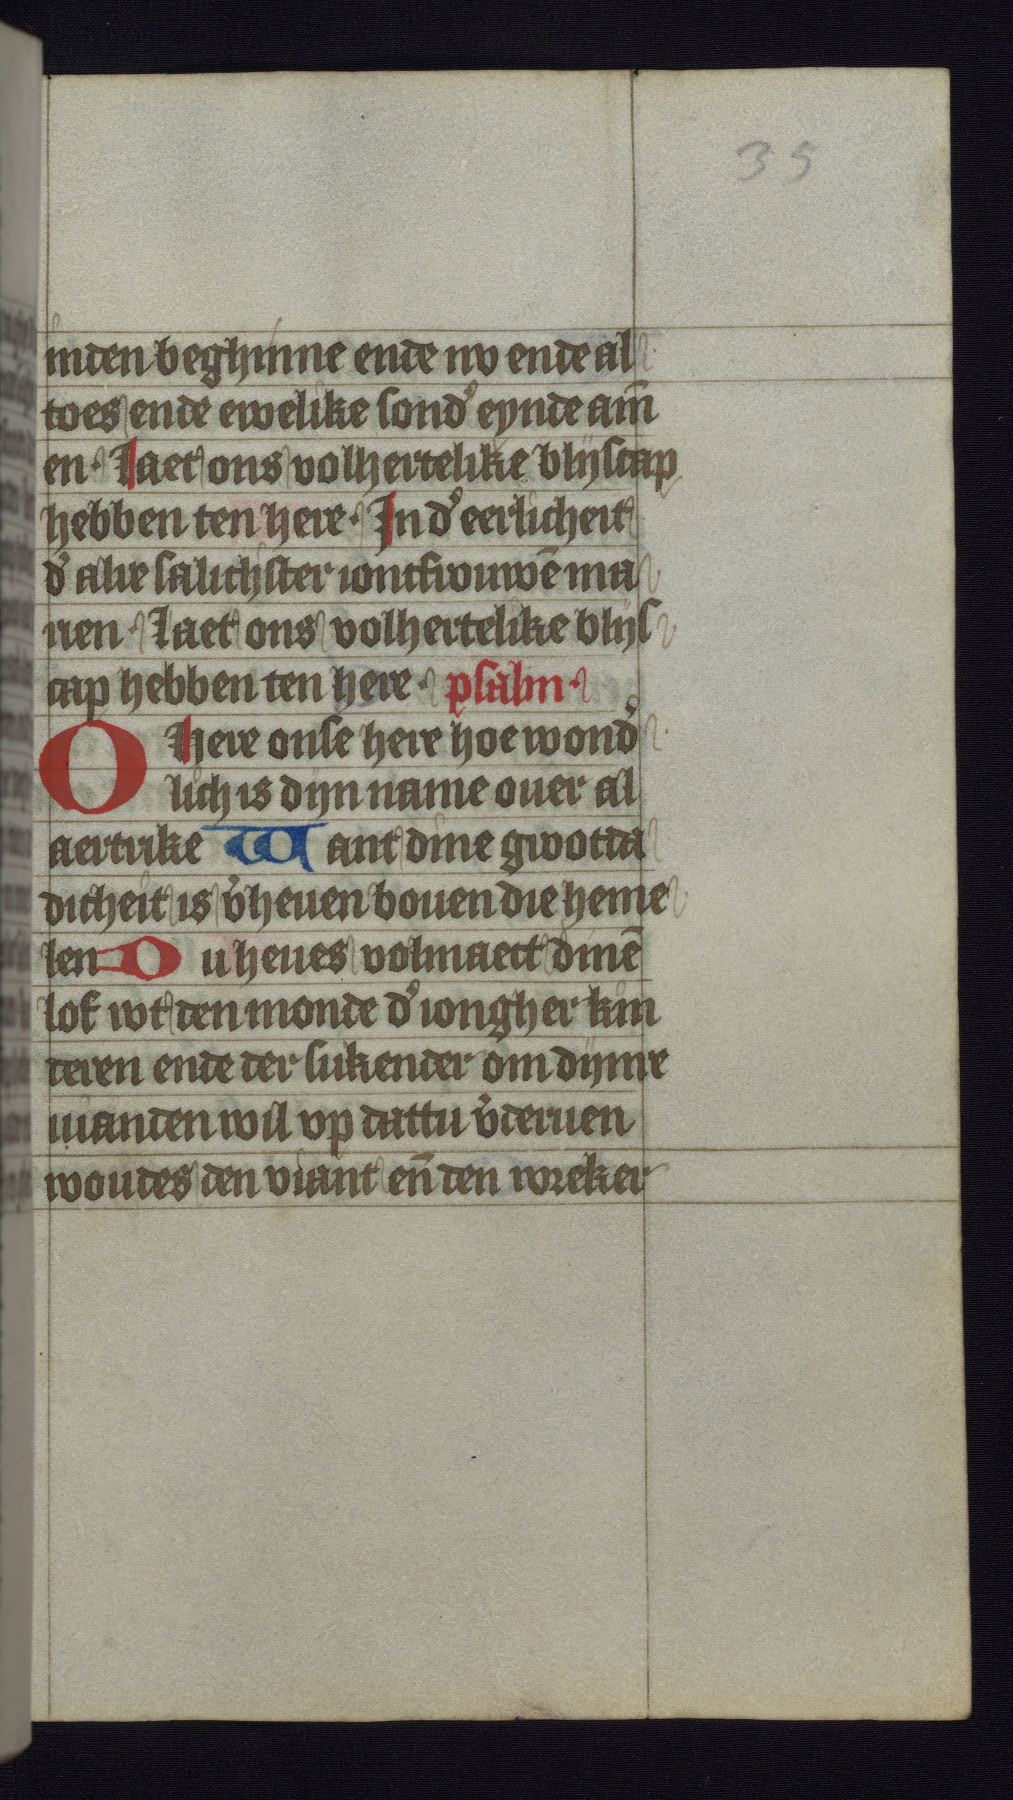 35
inden beghinne ende nv ende al
toes ende ewelike sond' eynde am̄
en· Laet ons volhertelike blijscap
hebben den here· In d' eerlicheit
d' alre salichster ioncfrouwē ma
rien· Laet ons volhertelike blijs
cap hebben den here· psalm·
O Here onse here hoe wond'
lich is dijn name ouer al
aertrike Want dine grootda
dicheit is v'heuen bouen die heme
len Du heues volmaect dinē
lof wt den monde d' iongher kin
deren ende der sukender om dijnre
uianden wil vp dattu v'deruen
woudes den viant eñ den wreker